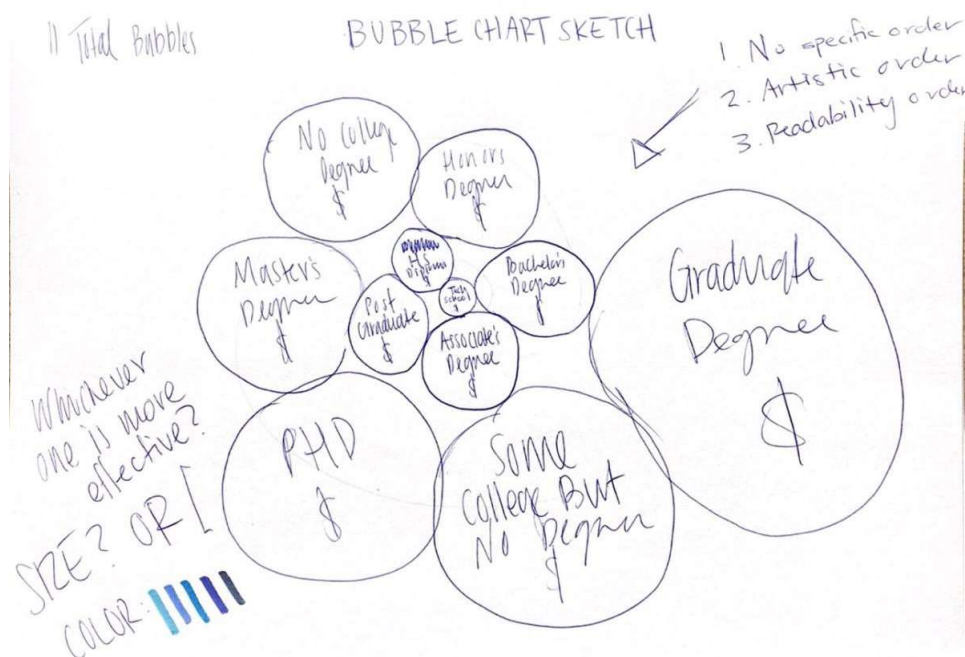 11 Total Bubbles
BUBBLE CHART SKETCH
1. No specific order
2. Artistic order
3. Readability order
No College
Degree
$
Honors
Degree
$
Master's
Degree
$
HS
Diploma
$
Tech
School
$
Bachelor's
Degree
$
Post
Graduate
$
Associate's
Degree
$
Graduate
Degree
$
PHD
$
Some
College But
No Degree
$
Whichever
one is more
effective?
SIZE? OR [
COLOR: